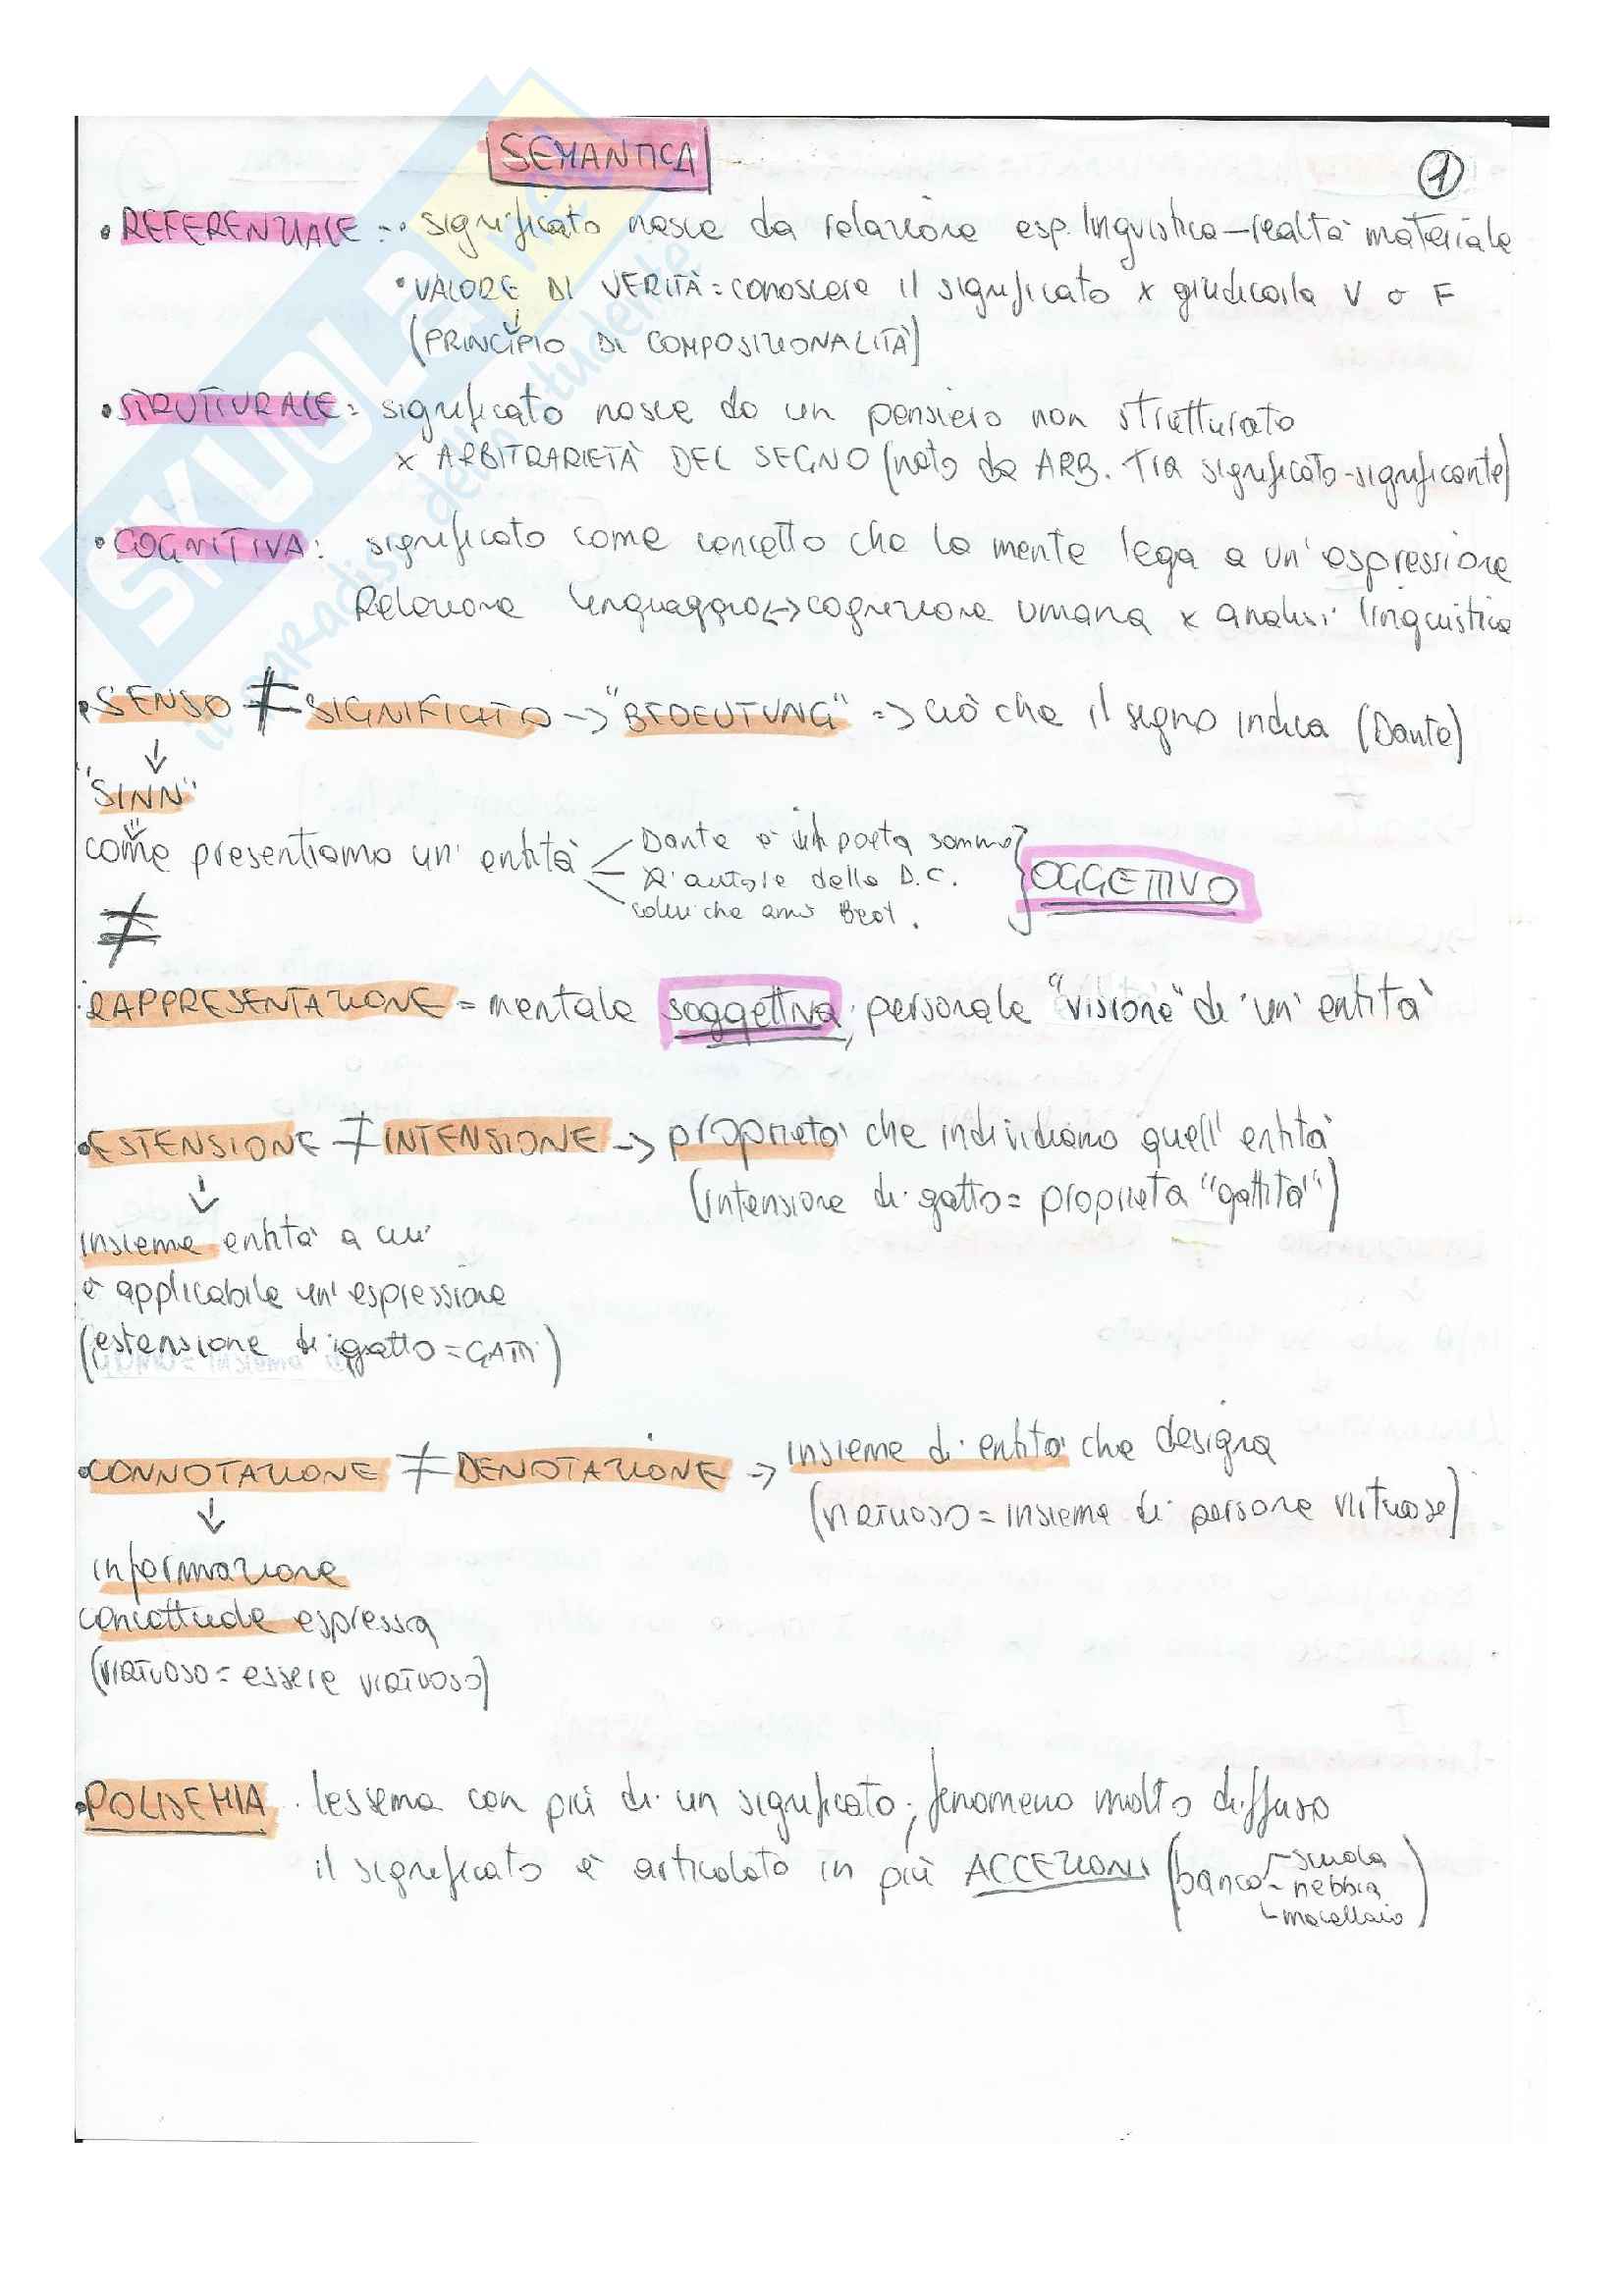 SEMANTICA
1
• REFERENZIALE: • significato nasce da relazione esp. linguistica – realtà materiale
• VALORE DI VERITÀ = conoscere il significato x giudicarla V o F
(PRINCIPIO DI COMPOSIZIONALITÀ)
• STRUTTURALE = significato nasce da un pensiero non strutturato
x ARBITRARIETÀ DEL SEGNO (nato da ARB. TRA significato-significante)
• COGNITIVA: significato come concetto che la mente lega a un'espressione
Relazione linguaggio <-> cognizione umana x analisi linguistica
• SENSO ≠ SIGNIFICATO -> "BEDEUTUNG" => ciò che il segno indica (Dante)
↓
"SINN"
come presentiamo un'entità
Dante è un poeta sommo
L'autore della D.C.
colui che amò Beat.
OGGETTIVO
≠
• RAPPRESENTAZIONE = mentale soggettiva; personale "visione" di un'entità
• ESTENSIONE ≠ INTENSIONE -> proprietà che individuano quell'entità
(intensione di gatto = proprietà "gattità")
↓
insieme entità a cui
è applicabile un'espressione
(estensione di gatto = GATTI)
• CONNOTAZIONE ≠ DENOTAZIONE -> insieme di entità che designa
(VIRTUOSO = insieme di persone virtuose)
↓
informazione
concettuale espressa
(VIRTUOSO = essere VIRTUOSO)
• POLISEMIA. lessema con più di un significato; fenomeno molto diffuso
il significato è articolato in più ACCEZIONI (banco - scuola
- nebbia
- macellaio)
SKUOLA.NET
il paradiso dello studente